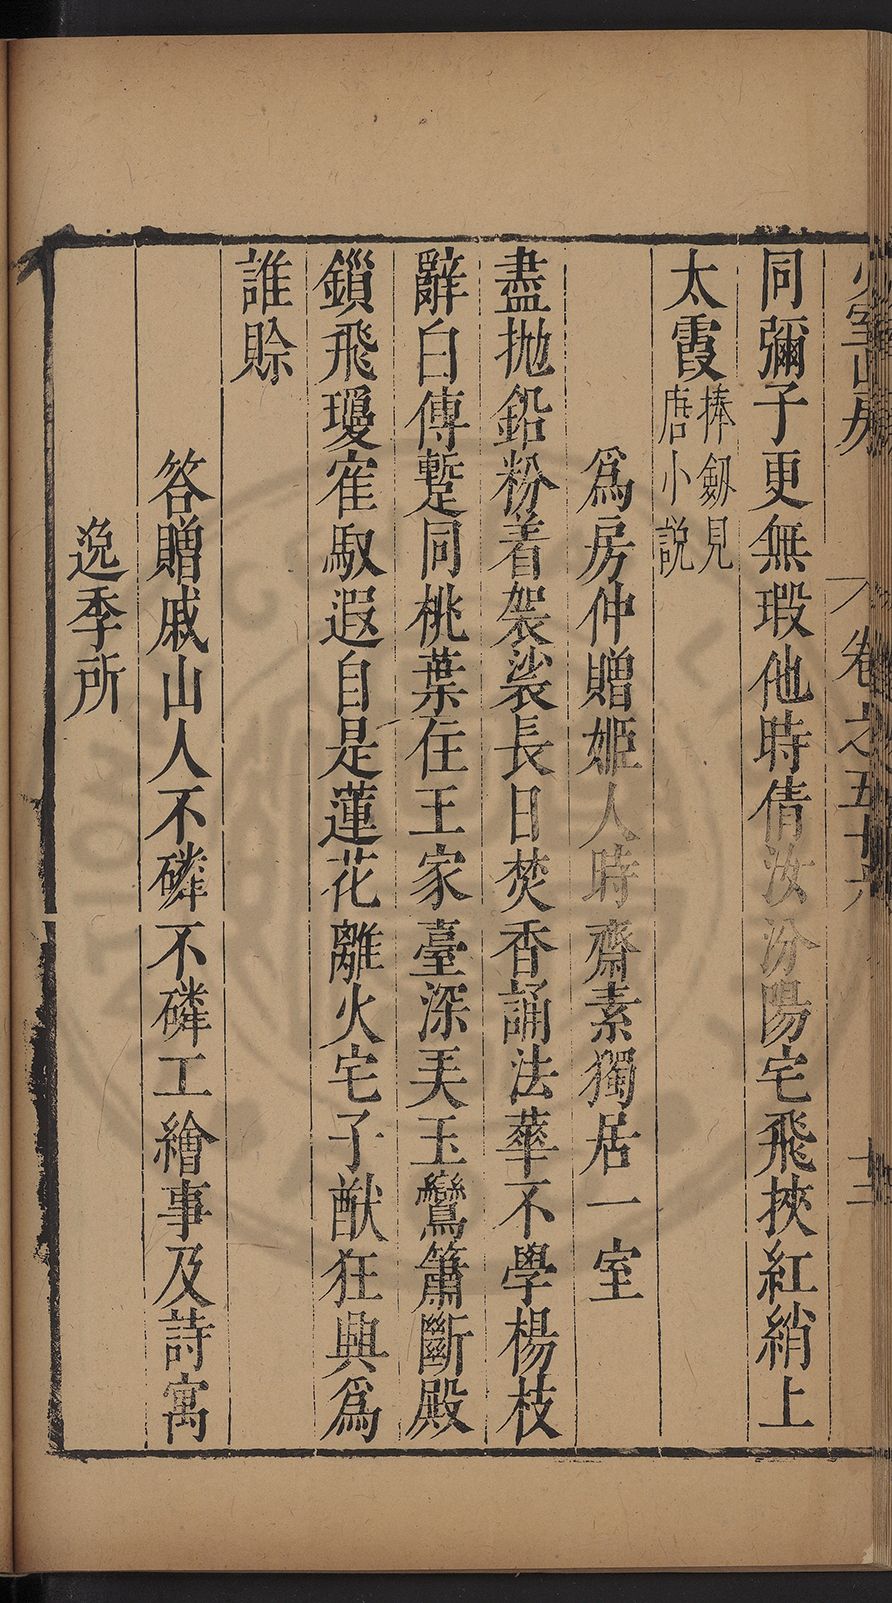 同彌子更無瑕他時倩汝汾陽宅飛挾紅綃上
太霞捧劔見唐小説
爲房仲贈姬人時齋素獨居一室
盡拋鉛粉着袈裟長日焚香誦法華不學楊枝
辭白傳蹔同桃葉住王家臺深美玉鸞簫斷殿
鎖飛瓊寉馭遐自是蓮花離火宅子猷狂興爲
誰賒
答贈戚山人不磷不磷工繪事及詩寓
逸季所